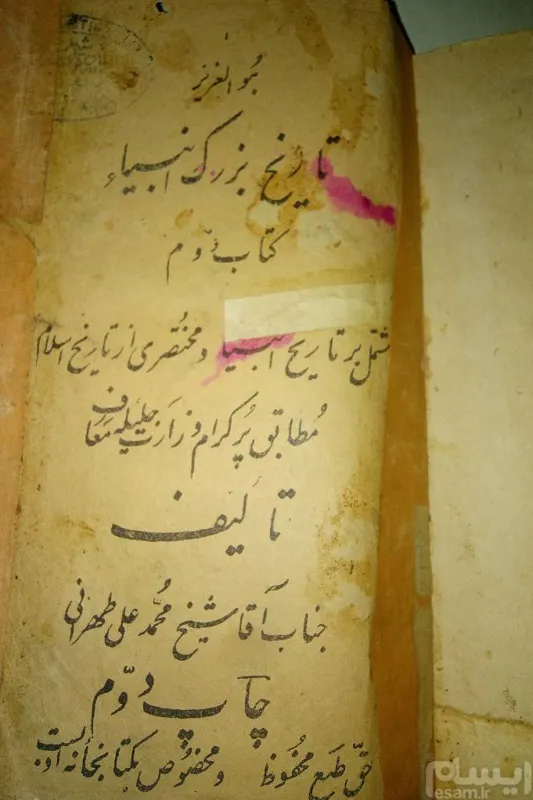 هو العزیز
تاریخ بزرگ انبیاء
کتاب دوم
مشتمل بر تاریخ انبیاء و مختصری از تاریخ اسلام
مُطابق پرُگرام وزارت جلیله معارف
تالیف
جناب آقا شیخ محمد علی طهرانی
چاپ دوّم
حقّ طبع محفوظ و مخصُوص بکتابخانه ادبست
ایسام
esam.ir